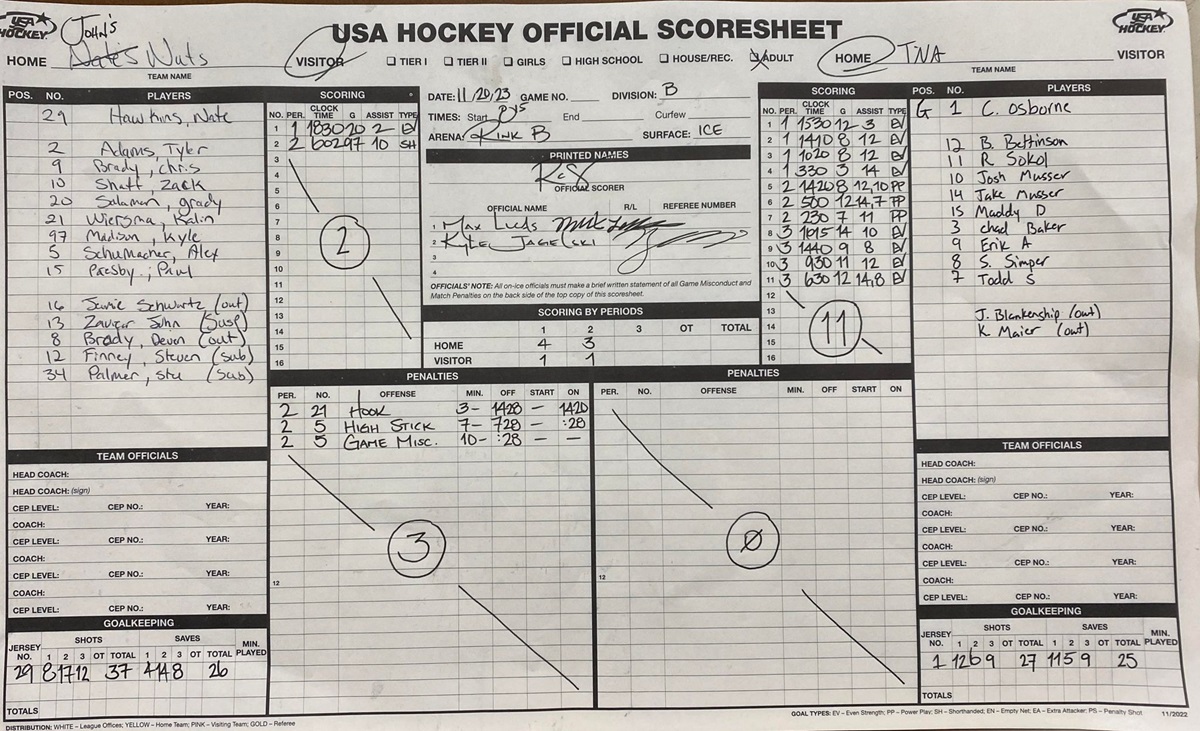 USA HOCKEY
JOHN'S
USA HOCKEY OFFICIAL SCORESHEET
USA HOCKEY
HOME Nate's Nuts VISITOR
TEAM NAME
☐ TIER I ☐ TIER II ☐ GIRLS ☐ HIGH SCHOOL ☐ HOUSE/REC. ☒ ADULT
HOME TNA VISITOR
TEAM NAME
POS. NO. PLAYERS
29 Hawkins, Nate
2 Adams, Tyler
9 Brady, chris
10 Shatt, Zack
20 Salaman, grady
21 Wiersma, Kalin
97 Madison, Kyle
5 Schumacher, Alex
15 Presby, Paul
16 Jamie Schwartz (out)
13 Zavitar John (Susp)
8 Brady, Deven (out)
12 Finney, Steven (sub)
34 Palmer, Stu (sub)
SCORING
NO. PER. CLOCK TIME G ASSIST TYPE
1 1 1830 20 2 EV
2 2 602 97 10 SH
3
4
5
6
7
8
9
10
11
12
13
14
15
16
2
DATE: 11/20/23 GAME NO. DIVISION: B
TIMES: Start 845 End Curfew
ARENA: RINK B SURFACE: ICE
PRINTED NAMES
KCS
OFFICIAL SCORER
OFFICIAL NAME R/L REFEREE NUMBER
1 Max Lieds
2 Kyle Jagielski
3
4
OFFICIALS' NOTE: All on-ice officials must make a brief written statement of all Game Misconduct and
Match Penalties on the back side of the top copy of this scoresheet.
SCORING BY PERIODS
1 2 3 OT TOTAL
HOME 4 3
VISITOR 1 1
SCORING
NO. PER. CLOCK TIME G ASSIST TYPE
1 1 1530 12 3 EV
2 1 1410 8 12 EV
3 1 1020 8 12 EV
4 1 330 3 14 EV
5 2 1420 8 12,10 PP
6 2 500 12 14,7 PP
7 2 230 7 11 PP
8 3 1615 14 10 EV
9 3 1440 9 8 EV
10 3 930 11 12 EV
11 3 630 12 14,8 EV
12
13
14
15
16
11
POS. NO. PLAYERS
G 1 C. Osborne
12 B. Bettinson
11 R. Sokol
10 Josh Musser
14 Jake Musser
15 Maddy D
3 chad Baker
9 Erik A
8 S. Simper
7 Todd S
J. Blankenship (out)
K. Maier (out)
PENALTIES
PER. NO. OFFENSE MIN. OFF START ON
2 21 HOOK 3- 1428 - 1420
2 5 HIGH STICK 7- 728 - :28
2 5 GAME MISC. 10- :28 - -
3
12
PENALTIES
PER. NO. OFFENSE MIN. OFF START ON
Ø
12
TEAM OFFICIALS
HEAD COACH:
HEAD COACH: (sign)
CEP LEVEL: CEP NO.: YEAR:
COACH:
CEP LEVEL: CEP NO.: YEAR:
COACH:
CEP LEVEL: CEP NO.: YEAR:
COACH:
CEP LEVEL: CEP NO.: YEAR:
GOALKEEPING
SHOTS SAVES
JERSEY NO. 1 2 3 OT TOTAL 1 2 3 OT TOTAL MIN. PLAYED
29 8 17 12 37 4 14 8 26
TOTALS
TEAM OFFICIALS
HEAD COACH:
HEAD COACH: (sign)
CEP LEVEL: CEP NO.: YEAR:
COACH:
CEP LEVEL: CEP NO.: YEAR:
COACH:
CEP LEVEL: CEP NO.: YEAR:
COACH:
CEP LEVEL: CEP NO.: YEAR:
GOALKEEPING
SHOTS SAVES
JERSEY NO. 1 2 3 OT TOTAL 1 2 3 OT TOTAL MIN. PLAYED
1 12 6 9 27 11 5 9 25
TOTALS
DISTRIBUTION: WHITE – League Offices; YELLOW – Home Team; PINK – Visiting Team; GOLD – Referee
GOAL TYPES: EV – Even Strength; PP – Power Play; SH – Shorthanded; EN – Empty Net; EA – Extra Attacker; PS – Penalty Shot 11/2022